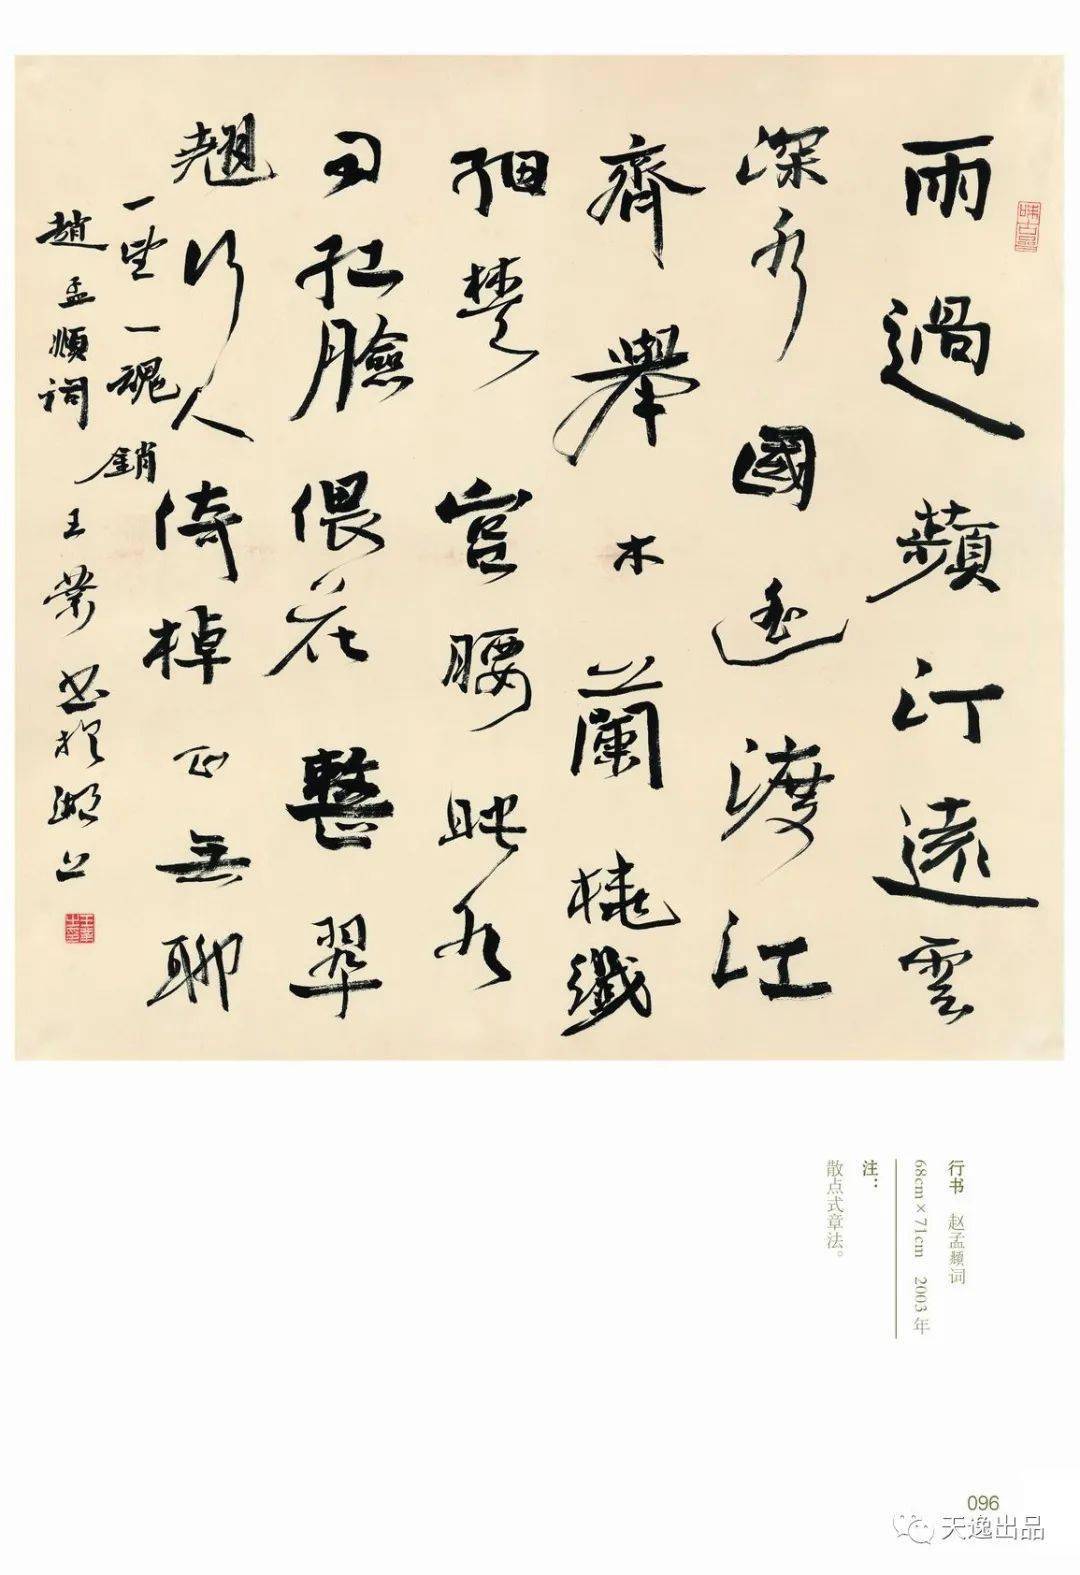 雨過蘋汀遠雲
深水國遙渡江
齊舉木蘭橈纖
細楚宮腰映水
勻紅臉偎花整翠
翹行人倚棹正無聊
一望一魂銷
趙孟順詞 王業書於湖上
行书 赵孟頫词
68cm×71cm 2003年
注：
散点式章法。
096
天逸出品